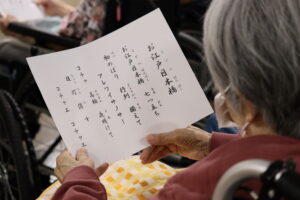 お江戸日本橋
お江戸日本橋 七つ立ち
初のぼり 行列 揃えて
アレワイサノサー
コチャ 高輪 夜明けて
提灯 消す
コチャエ コチャエ